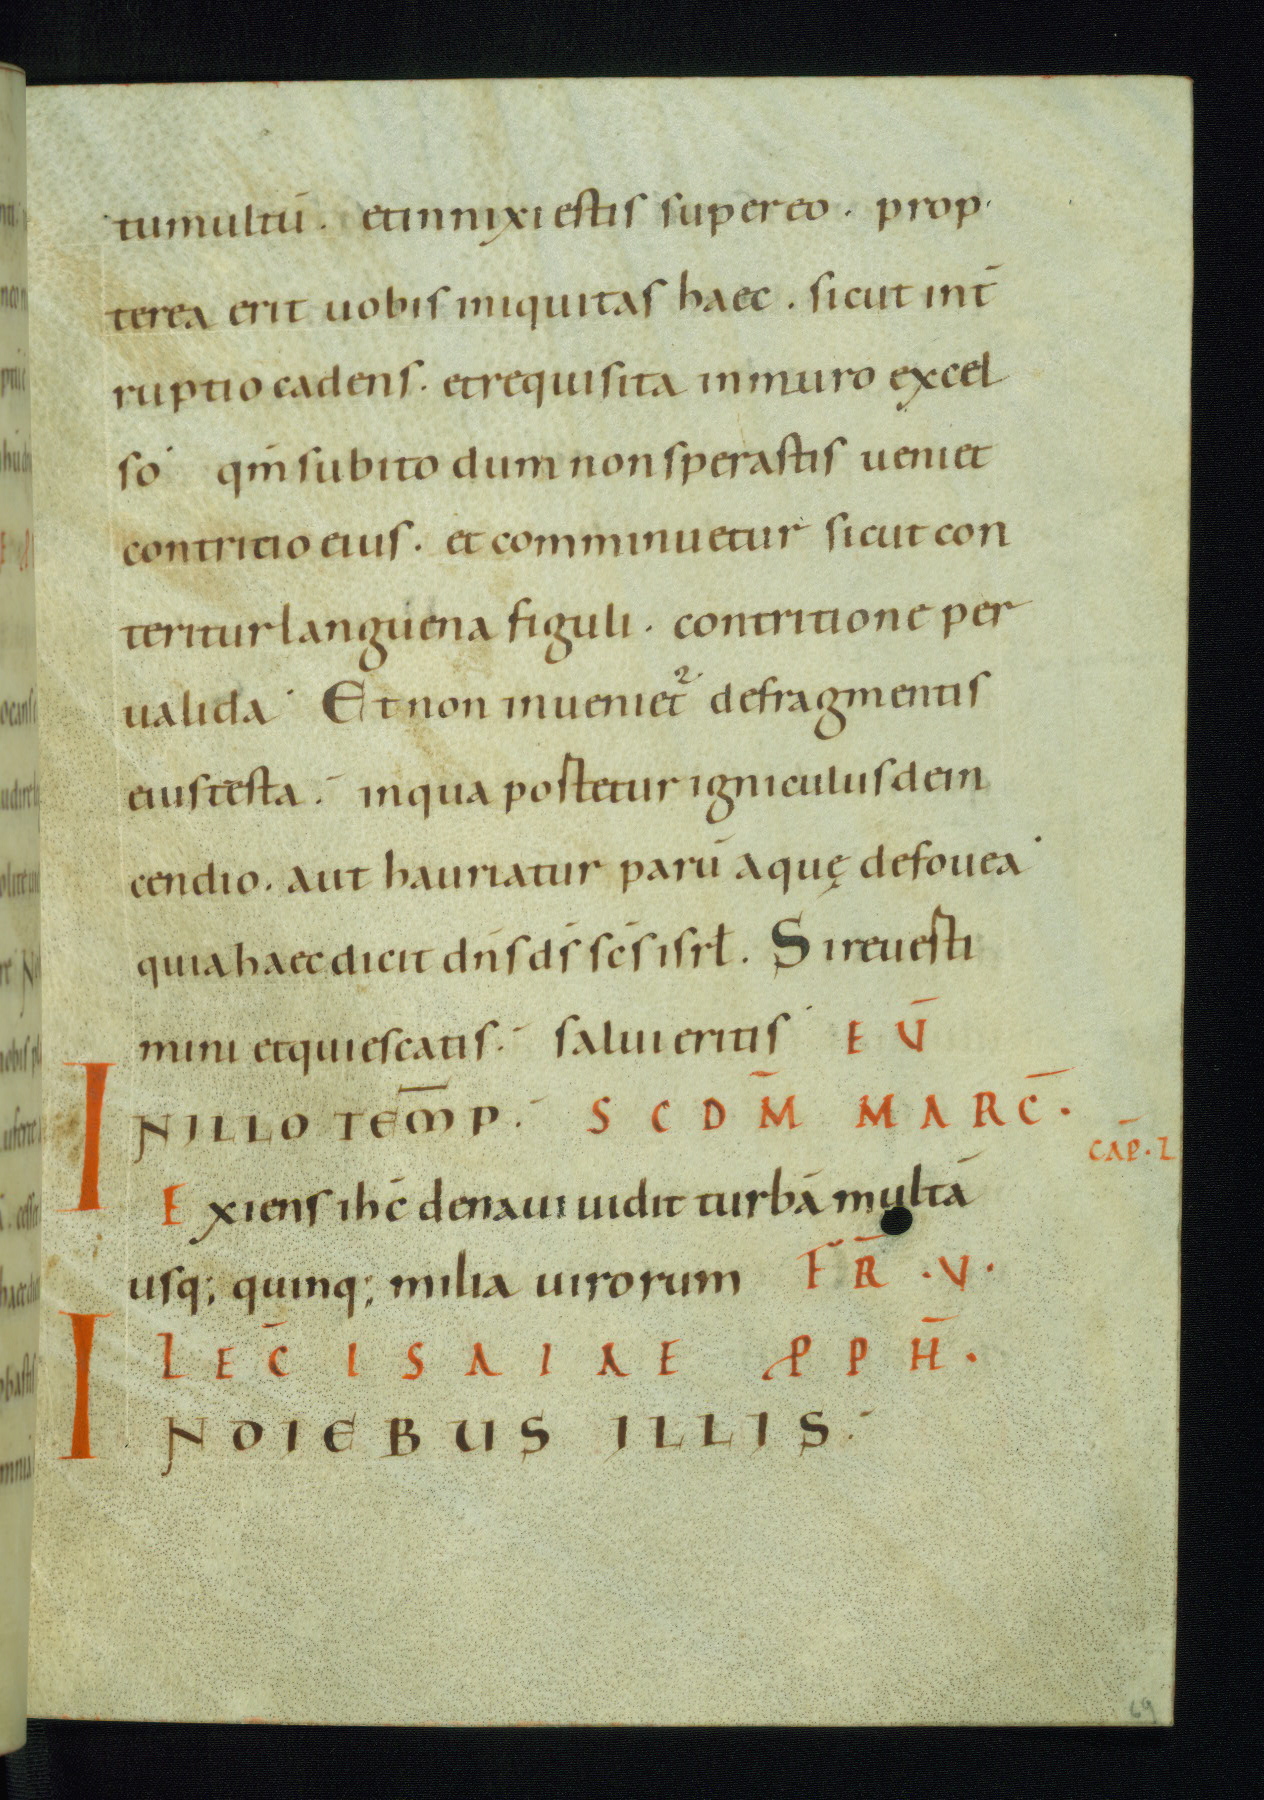 tumultū. etinnixi estis super eo. prop
terea erit uobis iniquitas haec. sicut int̄
ruptio cadens. etrequisita inmuro excel
so qm̄ subito dum non sperastis ueniet
contritio eius. et comminuetur sicut con
teritur languena figuli. contritione per
ualida Et non inueniet᷑ defragmentis
eius testa. inqua postetur igniculus dein
cendio. aut hauriatur parū aquę defouea
quia haec dicit dn̄s ds̄ sc̄s isrł. Sireuesti
mini etquiescatis. salui eritis EŪ
INILLO TEM̄P. SCDM̄ MARC̄.
CAP̄. L
Exiens ih̄c denaui uidit turbā multā
usq; quinq; milia uirorum FR̄ .V.
LEC̄ ISAIAE PPH̄.
INDIEBUS ILLIS.
69